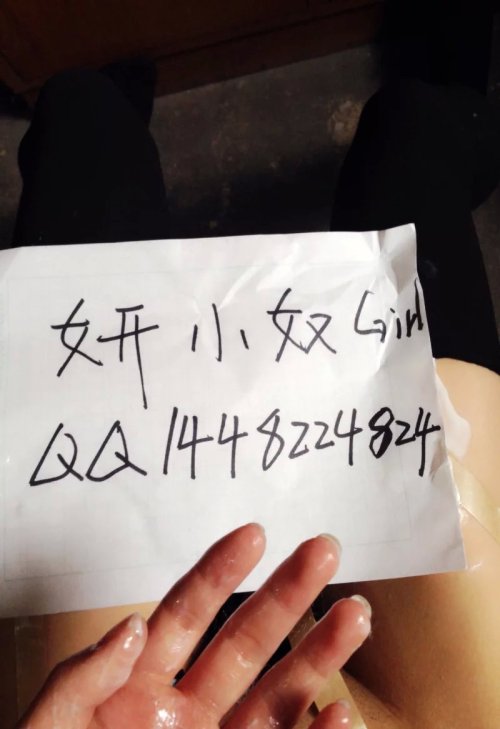 妍小奴Girl
QQ1448224824